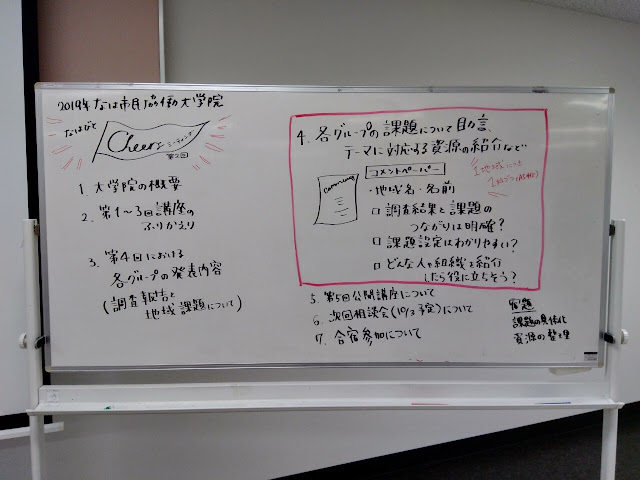 2019年 なは市民協働大学院
なはびと
Cheersミーティング
第2回
1. 大学院の概要
2. 第1〜3回講座の
ふりかえり
3. 第4回における
各グループの発表内容
(調査報告と
地域課題について)
4. 各グループの課題について助言、
テーマに対応する資源の紹介など
コメントペーパー
・地域名・名前
□ 調査結果と課題の
つながりは明確?
□ 課題設定はわかりやすい?
□ どんな人や組織を紹介
したら役に立ちそう?
1地域につき
5. 第5回公開講座について
6. 次回相談会(10/3予定)について
7. 合宿参加について
宿題
課題の具体化
資源の整理